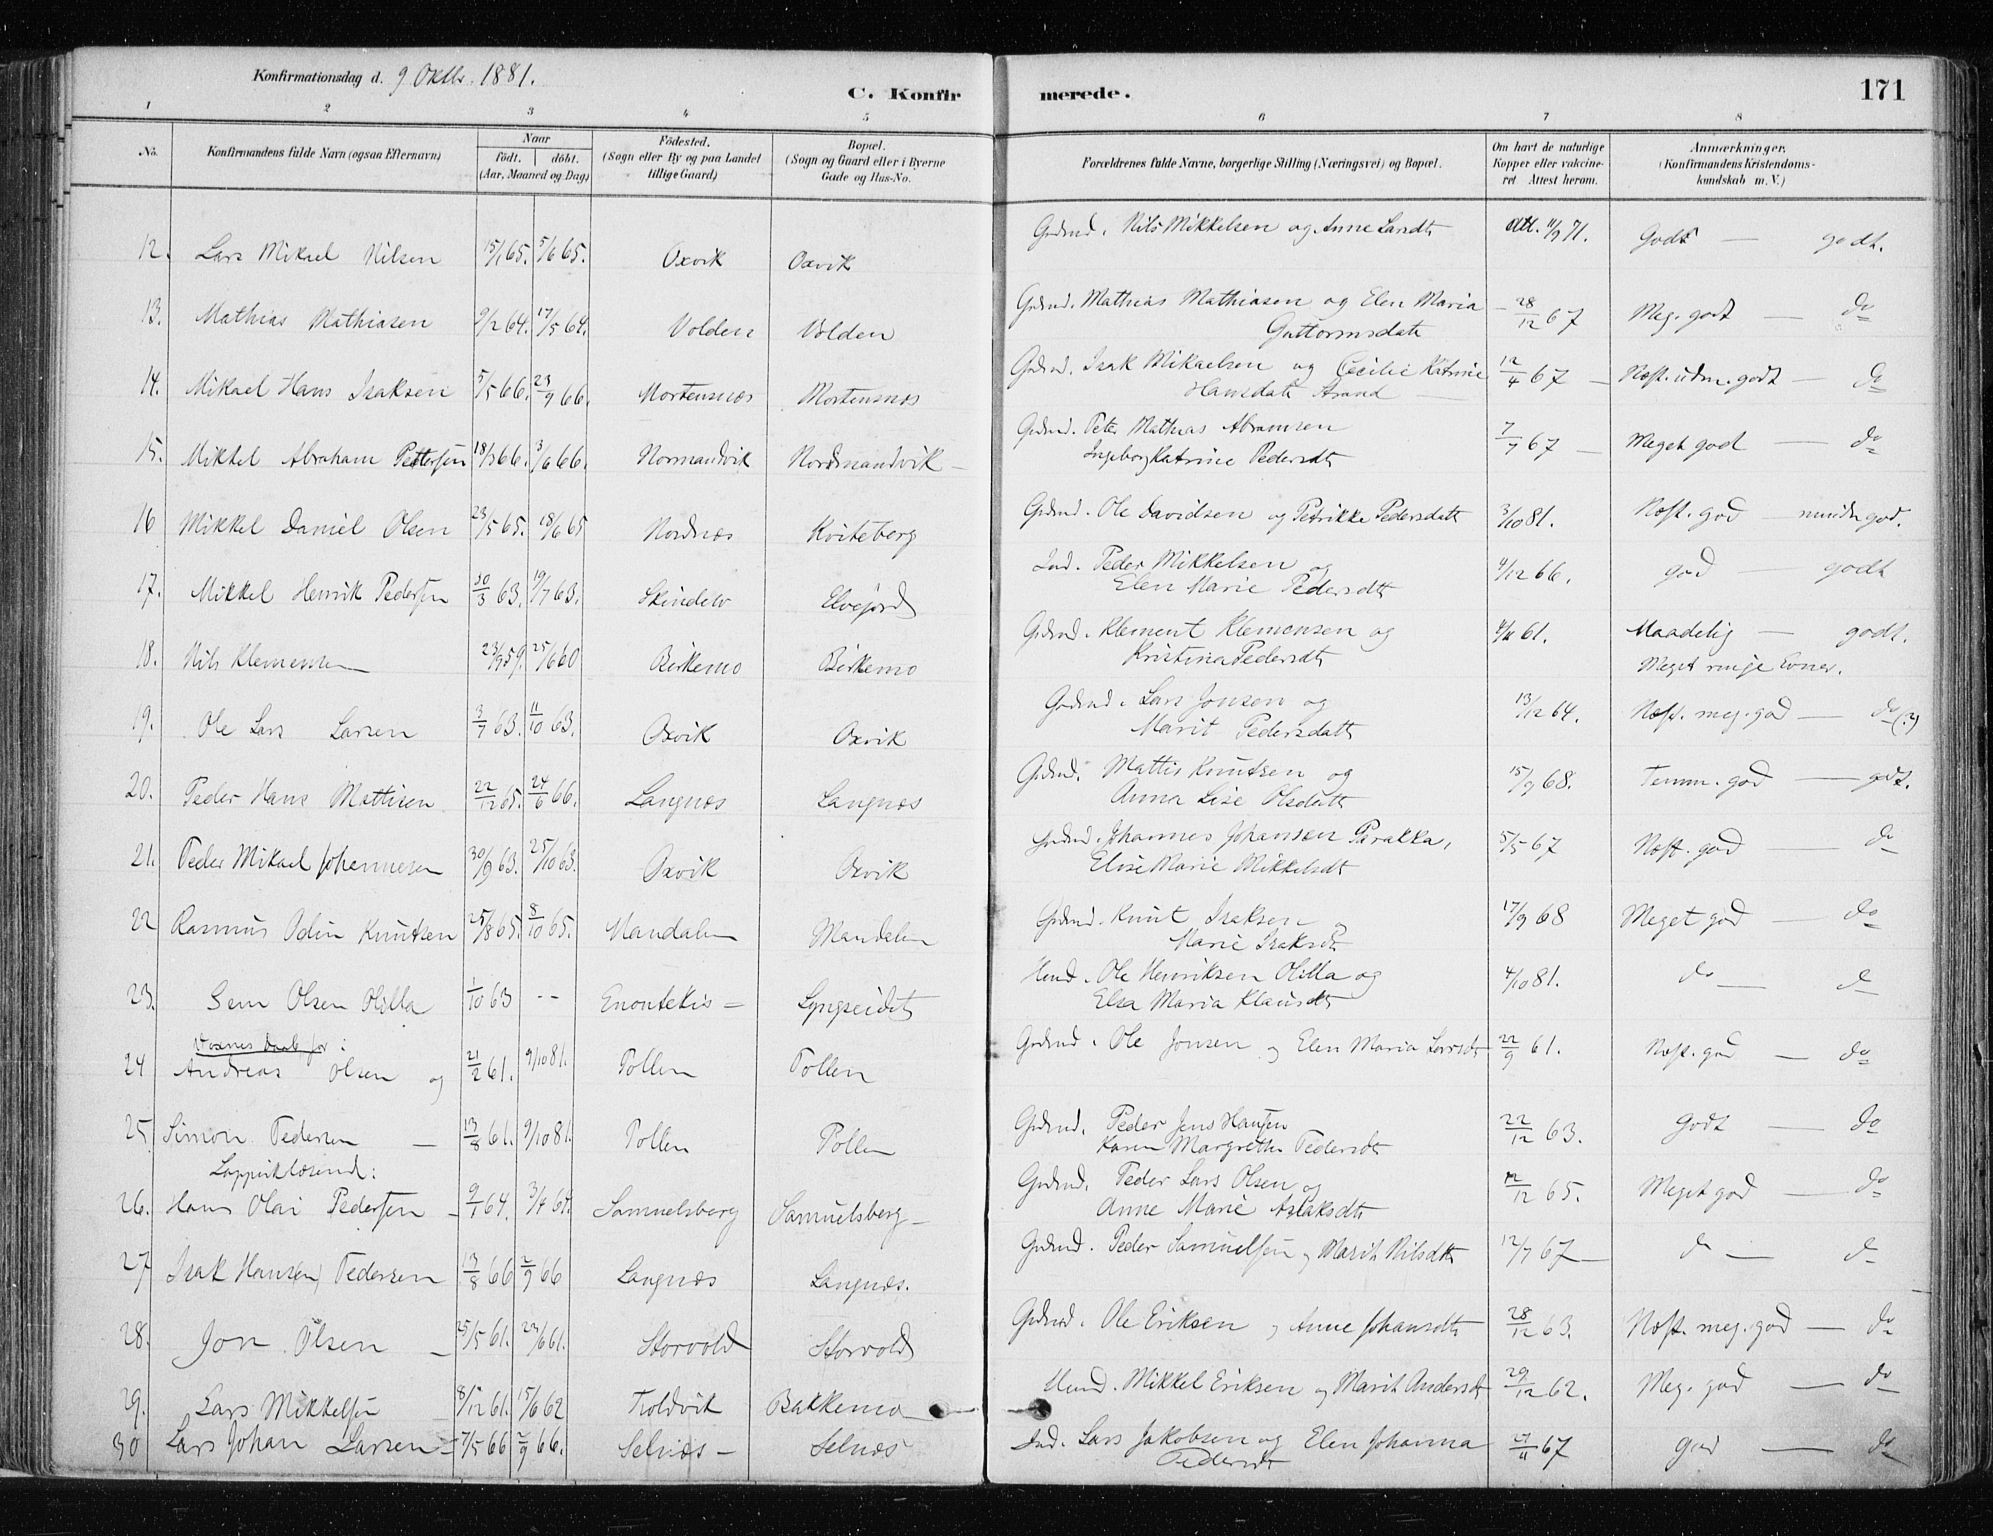 Konfirmationsdag d. 9 Oktbr. 1881.
C. Konfirmerede.
171
1 2 3 4 5 6 7 8
No.
Konfirmandens fulde Navn (ogsaa Efternavn)
Naar
födt. döbt.
(Aar, Maaned og Dag)
Födested.
(Sogn eller By og paa Landet
tillige Gaard)
Bopæl.
(Sogn og Gaard eller i Byerne
Gade og Hus-No.
Forældrenes fulde Navne, borgerlige Stilling (Næringsvei) og Bopæl.
Om havt de naturlige
Kopper eller vakcine-
ret Attest herom.
Anmærkninger.
(Konfirmandens Kristendoms-
kundskab m. V.)
12. Lars Mikael Nilsen 15/1 65. 5/6 65. Oxvik Oxvik Grdmd. Nils Mikkelsen og Anne Larsdtr Att. 11/9 71. Godt — godt.
13. Mathias Mathiasen 9/2 64. 17/5 64. Volden Volden Grdmd. Mathias Mathiasen og Elen Maria
Guttormsdatr 28/12 67 Meg. godt — do
14. Mikael Hans Isaksen 5/5 66. 23/9 66. Mortensnæs Mortensnæs Grdmd. Isak Mikaelsen og Cecilie Katrine
Hansdatr 12/4 67 — Næst. udm. godt — do
15. Mikkel Abraham Pettersen 18/3 66. 3/6 66. Normandvik Nordmandvik — Grdmd. Peter Mathias Abramsen
Ingeborg Katrine Pedersdtr 7/7 67 — Meget god — do
16 Mikkel Daniel Olsen 23/5 65. 18/6 65 Nordnæs Kviteberg Grdmd. Ole Davidsen og Petrikke Pedersdatr 3/10 81. Næst. god — mindre god.
17. Mikkel Henrik Pedersen 30/3 63. 19/7 63. Skindelv Elvejord Ind. Peder Mikkelsen og
Elen Marie Pedersdtr 4/12 66. god — godt
18. Nils Klemensen 23/9 59. 25/6 60 Birkemo Birkemo Grdmd. Klement Klemensen og
Kristina Pedersdtr 4/11 61. Maadelig — godt.
Meget ringe Evner.
19. Ole Lars Larsen 3/7 63. 11/10 63. Oxvik Oxvik Grdmd. Lars Jonsen og
Marit Pedersdatr 13/12 64. Næst. meg. god — do (?)
20. Peder Hans Mattisen 22/12 65. 24/6 66. Langnæs Langnæs Grdmd. Mattis Knutsen og
Anna Lise Olsdatr 15/9 68. Temm. god — godt.
21. Peder Mikael Johannesen 30/9 63. 25/10 63. Oxvik Oxvik Grdmd. Johannes Johansen Parakka,
Elise Marie Mikkelsdtr 5/5 67 Næst. god — do
22 Rasmus Odin Knutsen 25/8 65. 8/10 65. Mandalen Mandalen Grdmd. Knut Isaksen
Marie Isaksdtr 17/9 68 Meget god — do
23. Sem Olsen Olilla 1/10 63 -- Enontekis — Lyngseidet Hmd. Ole Henriksen Olilla og
Elsa Maria Klausdtr 4/10 81. do — do
Voxnes Daab for:
24 Andreas Olsen og 21/2 61. 9/10 81. Pollen Pollen Grdmd. Ole Jonsen og Elen Maria Larsdtr 22/9 61. Næst. god — do
25 Simon Pedersen — 13/8 61. 9/10 81. Pollen Pollen Grdmd. Peder Jens Hansen
Karen Margrethe Pedersdtr 22/12 63. Godt — do
Lappisklæsende:
26. Hans Olai Pedersen — 9/1 64. 3/4 64. Samuelsberg Samuelsberg — Grdmd. Peder Lars Olsen og
Anne Marie Aslaksdtr 12/12 65. Meget god — do
27 Isak Hansen Pedersen 13/8 66 2/9 66 Langnæs Langnæs. Grdmd. Peder Samuelsen og Marit Nilsdtr 12/7 67 — do — do
28. Jon Olsen — 25/5 61. 23/6 61. Storvold Storvold Grdmd. Ole Eriksen og Anne Johansdtr 28/12 63. Næst. meg. god — do
29. Lars Mikkelsen 8/12 61. 15/6 62 Troldvik Bakkemo Hmd. Mikkel Eriksen og Marit Andersdtr 29/12 62. Meg. god — do
30 Lars Johan Larsen — 7/5 66 2/9 66. Selnæs — Selnæs Ind. Lars Jakobsen og Elen Johanna
Pedersdtr 21/11 67 God — do